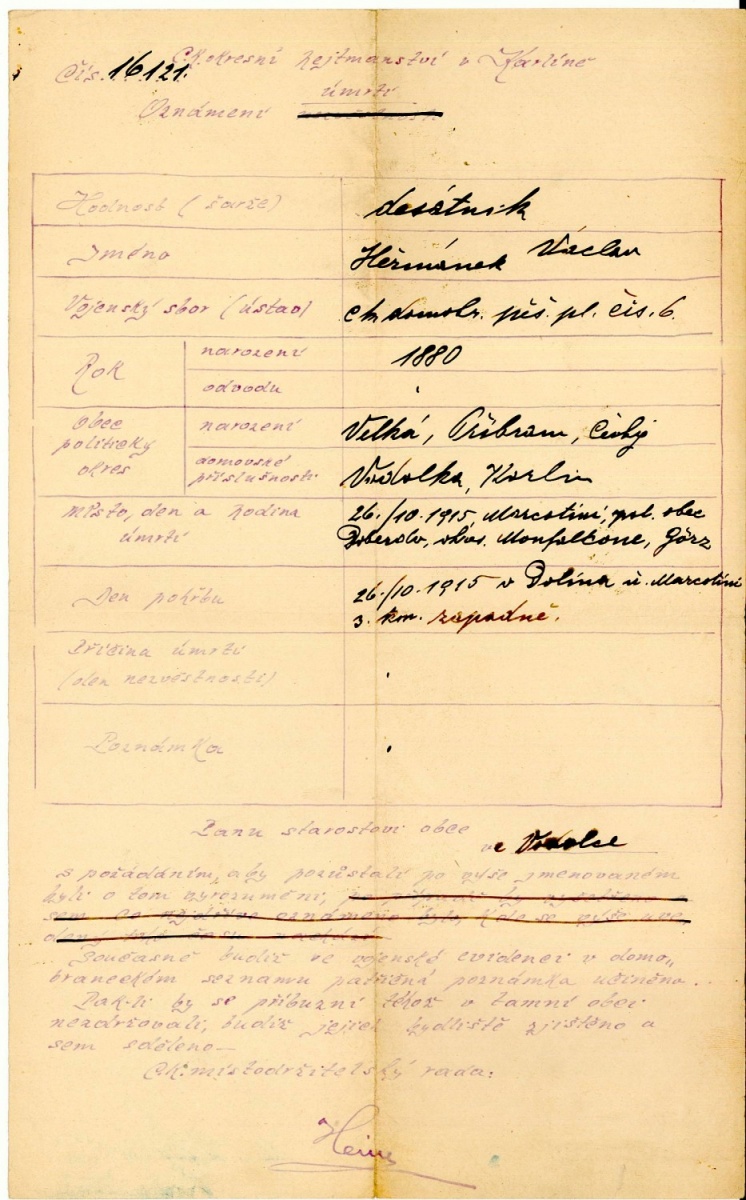 C.k. okresní hejtmanství v Karlíně
Čís. 16.121.
úmrtí
Oznámení
Hodnost (šarže) desátník
Jméno Heřmánek Václav
Vojenský sbor (ústav) ck. domobr. pěš. pl. čís. 6.
Rok narození 1880
odvodu
Obec politický okres narození Velká, Příbram, Čechy
domovské příslušnosti Vodolka, Karlín
Místo, den a hodina úmrtí 26./10. 1915 Marcotini, pol. obec
Doberdo, okres. Monfalcone, Görz
Den pohřbu 26./10. 1915 v Dolina u. Marcotini
3. km. západně.
Příčina úmrtí
(den nezvěstnosti)
Poznámka
Panu starostovi obce
ve Vodolce
s požádáním, aby pozůstalí po výše jmenovaném
byli o tom vyrozuměni, po případě by vyšetřeno a
sem co nejdříve oznámeno bylo, kde se výše uve-
dený
Současně budiž ve vojenské evidenci v domo„
braneckém seznamu patřičná poznámka učiněna..
Pak-li by se příbuzní téhož v tamní obci
nezdržovali, budiž jejich bydliště zjištěno a
sem sděleno—
C.k. místodržitelský rada: